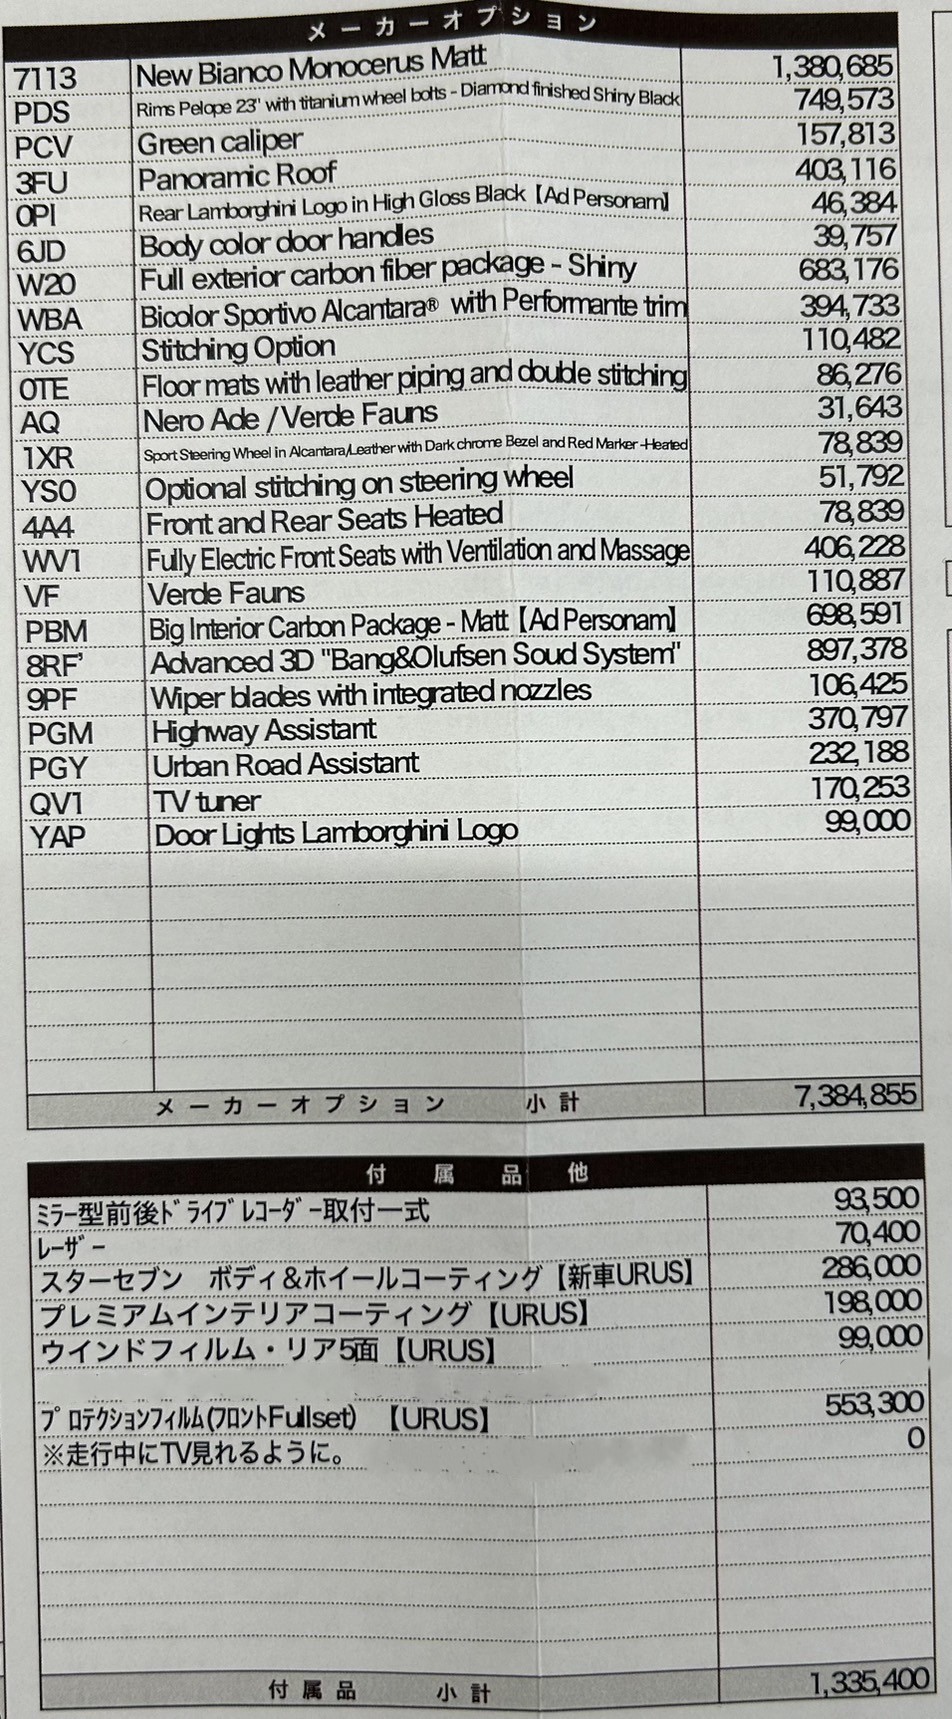 メーカーオプション
7113 New Bianco Monocerus Matt 1,380,685
PDS Rims Pelope 23' with titanium wheel bolts - Diamond finished Shiny Black 749,573
PCV Green caliper 157,813
3FU Panoramic Roof 403,116
0PI Rear Lamborghini Logo in High Gloss Black【Ad Personam】 46,384
6JD Body color door handles 39,757
W20 Full exterior carbon fiber package - Shiny 683,176
WBA Bicolor Sportivo Alcantara® with Performante trim 394,733
YCS Stitching Option 110,482
0TE Floor mats with leather piping and double stitching 86,276
AQ Nero Ade / Verde Fauns 31,643
1XR Sport Steering Wheel in Alcantara/Leather with Dark chrome Bezel and Red Marker -Heated 78,839
YS0 Optional stitching on steering wheel 51,792
4A4 Front and Rear Seats Heated 78,839
WV1 Fully Electric Front Seats with Ventilation and Massage 406,228
VF Verde Fauns 110,887
PBM Big Interior Carbon Package - Matt【Ad Personam】 698,591
8RF' Advanced 3D "Bang&Olufsen Soud System" 897,378
9PF Wiper blades with integrated nozzles 106,425
PGM Highway Assistant 370,797
PGY Urban Road Assistant 232,188
QV1 TV tuner 170,253
YAP Door Lights Lamborghini Logo 99,000
メーカーオプション 小計 7,384,855
付属品他
ﾐﾗｰ型前後ﾄﾞﾗｲﾌﾞﾚｺｰﾀﾞｰ取付一式 93,500
ﾚｰｻﾞｰ 70,400
スターセブン ボディ＆ホイールコーティング【新車URUS】 286,000
プレミアムインテリアコーティング【URUS】 198,000
ウインドフィルム・リア5面【URUS】 99,000
ﾌﾟﾛﾃｸｼｮﾝﾌｨﾙﾑ(ﾌﾛﾝﾄFullset) 【URUS】 553,300
※走行中にTV見れるように。 0
付属品 小計 1,335,400